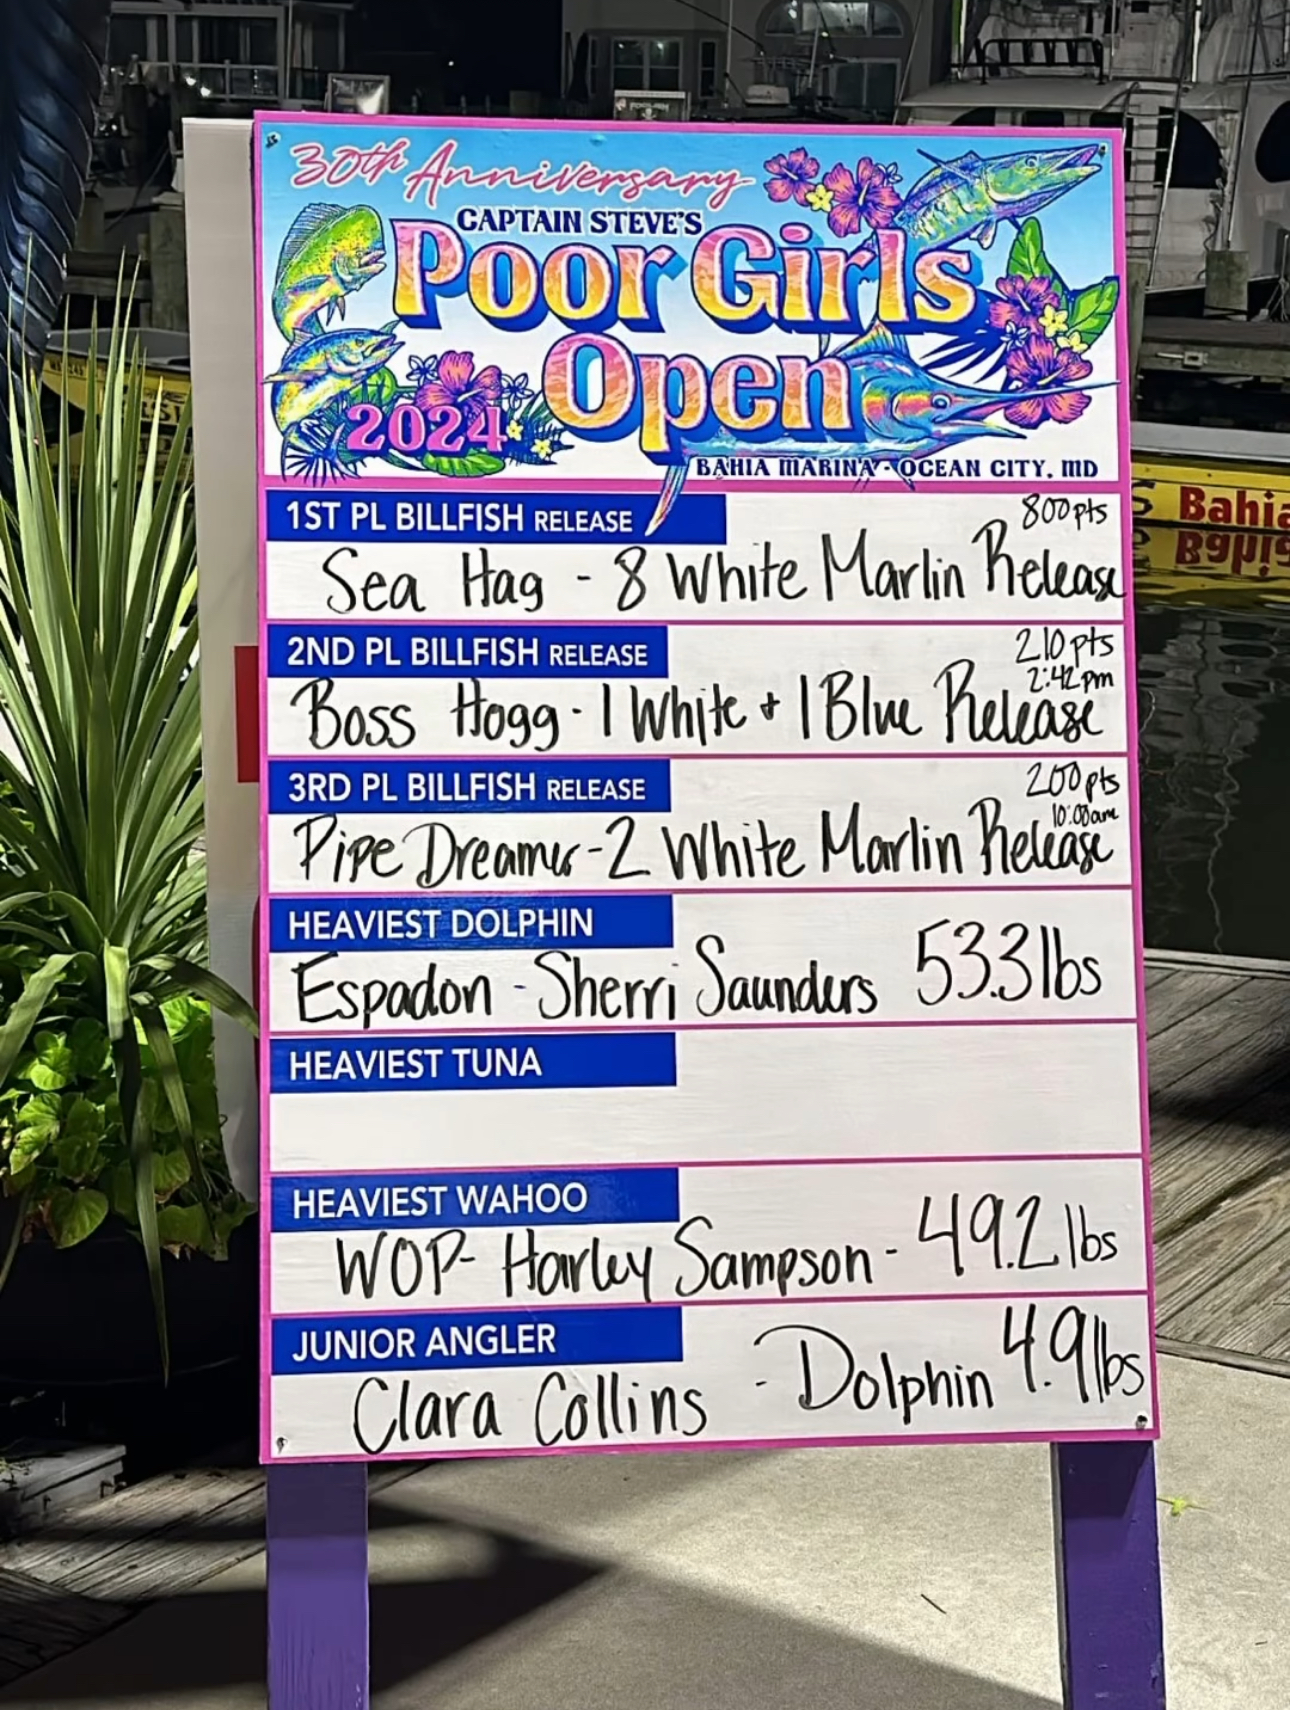 30th Anniversary
CAPTAIN STEVE'S
Poor Girls
Open
2024
BAHIA MARINA - OCEAN CITY, MD
1ST PL BILLFISH RELEASE
800pts
Sea Hag - 8 White Marlin Release
2ND PL BILLFISH RELEASE
210pts
2:42pm
Boss Hogg - 1 White + 1 Blue Release
3RD PL BILLFISH RELEASE
200pts
10:00am
Pipe Dreamer - 2 White Marlin Release
HEAVIEST DOLPHIN
Espadon - Sherri Saunders 53.3lbs
HEAVIEST TUNA
HEAVIEST WAHOO
WOP- Harley Sampson - 49.2 lbs
JUNIOR ANGLER
Clara Collins - Dolphin 4.9lbs
Bahia